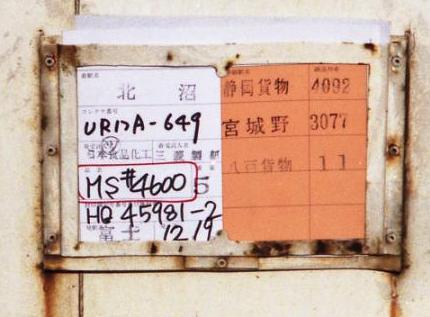 北沼
URI7A-649
日本食品化工 三菱製紙
MS#4600 5
HQ 45981-2
富士 12/9
静岡貨物 4092
宮城野 3077
八百貨物 11